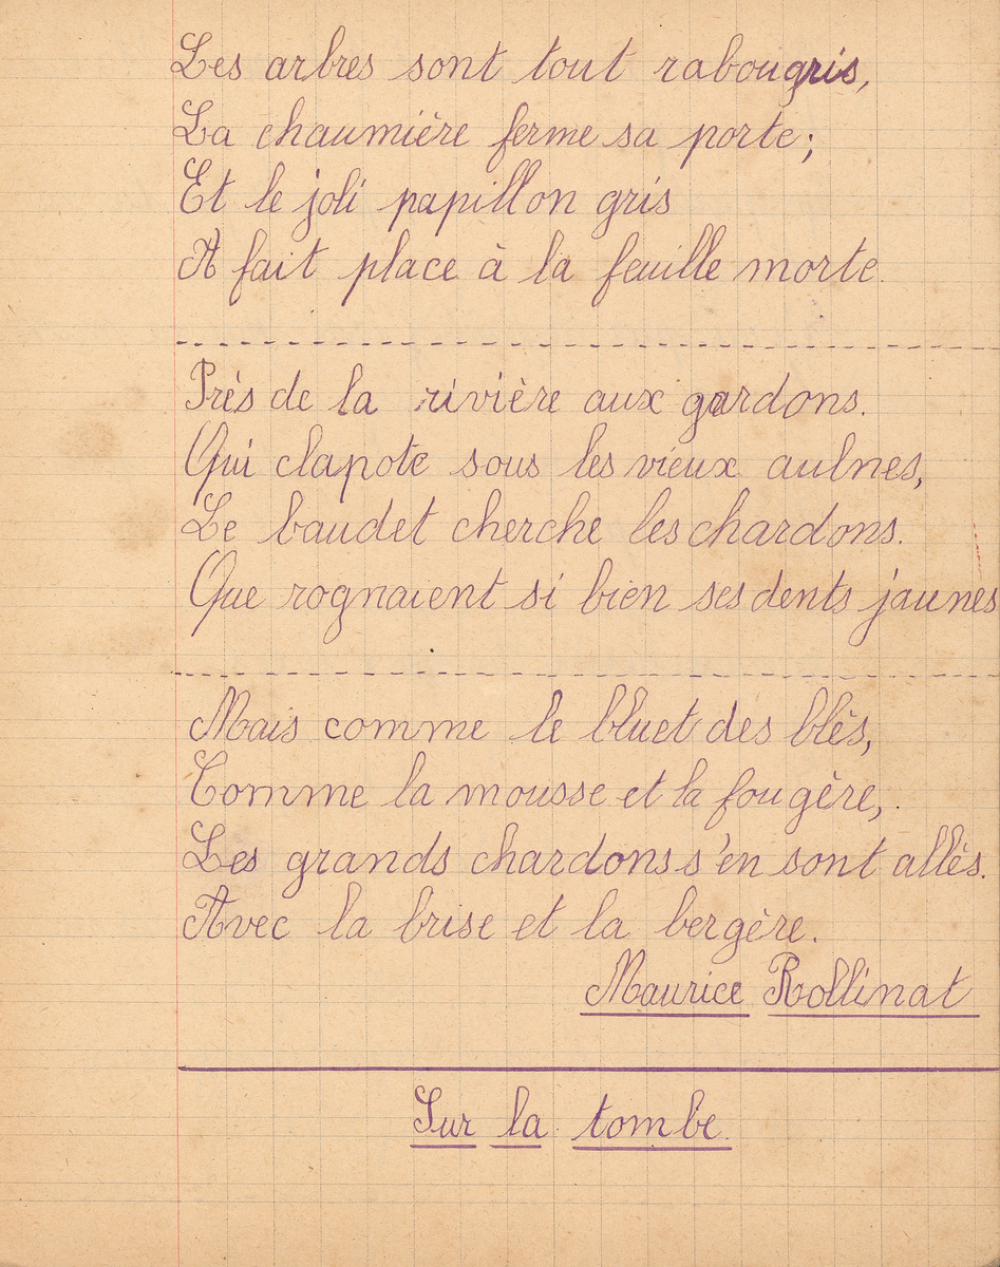 Les arbres sont tout rabougris,
La chaumière ferme sa porte;
Et le joli papillon gris
A fait place à la feuille morte.
Près de la rivière aux gardons.
Qui clapote sous les vieux aulnes,
Le baudet cherche les chardons.
Que rognaient si bien ses dents jaunes
Mais comme le bluet des blès,
Comme la mousse et la fougère,
Les grands chardons s'en sont allès.
Avec la brise et la bergère.
Maurice Rollinat
Sur la tombe.